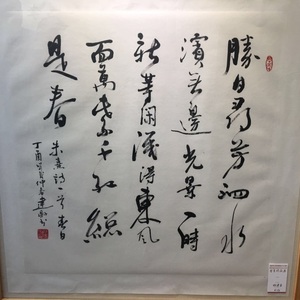 勝日尋芳泗水
濱無邊光景一時
新等閑識得東風
面萬紫千紅總
是春
朱熹詩一首春日
丁酉